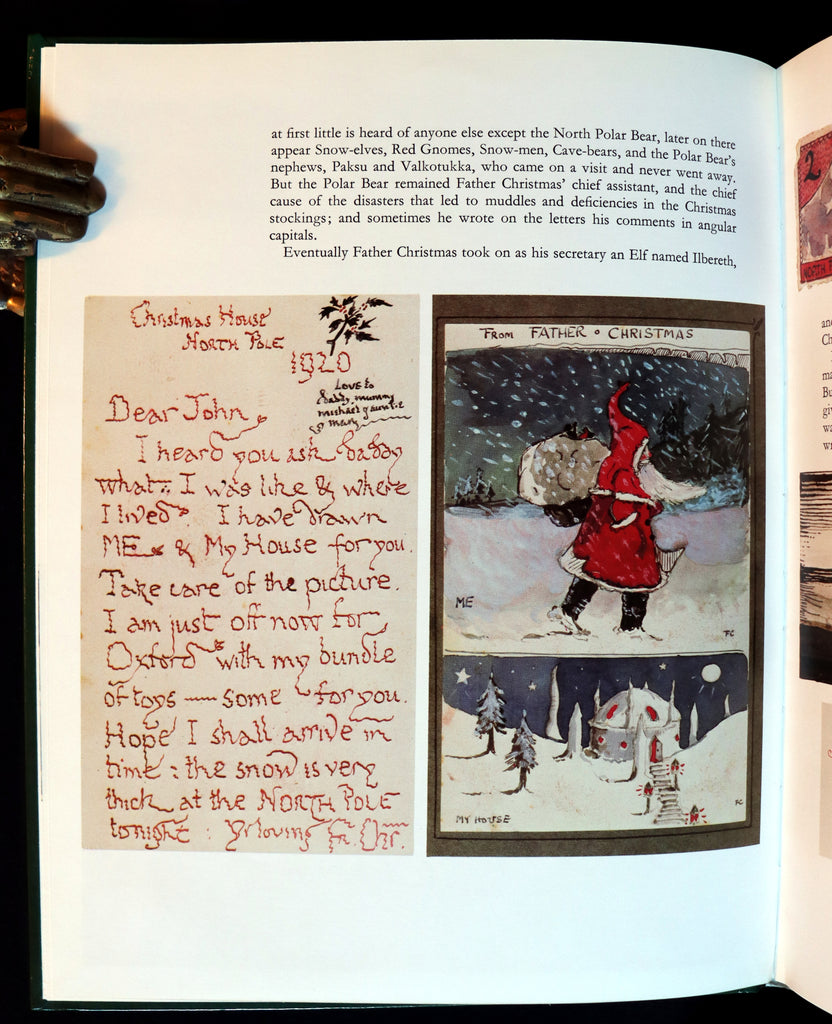 at first little is heard of anyone else except the North Polar Bear, later on there
appear Snow-elves, Red Gnomes, Snow-men, Cave-bears, and the Polar Bear's
nephews, Paksu and Valkotukka, who came on a visit and never went away.
But the Polar Bear remained Father Christmas' chief assistant, and the chief
cause of the disasters that led to muddles and deficiencies in the Christmas
stockings; and sometimes he wrote on the letters his comments in angular
capitals.
Eventually Father Christmas took on as his secretary an Elf named Ilbereth,
Christmas House
NORTH POLE
1920
Love to
daddy, mummy
michael & auntie
& mary
Dear John,
I heard you ask daddy
what I was like & where
I lived. I have drawn
ME & My House for you.
Take care of the picture.
I am just off now for
Oxford with my bundle
of toys — some for you.
Hope I shall arrive in
time: the snow is very
thick at the NORTH POLE
tonight: Yr loving Fr. Chr.
FROM FATHER • CHRISTMAS
ME
FC
MY HOUSE
FC
2
NORTH P
an
Ch
ma
Bu
giv
wa
wr